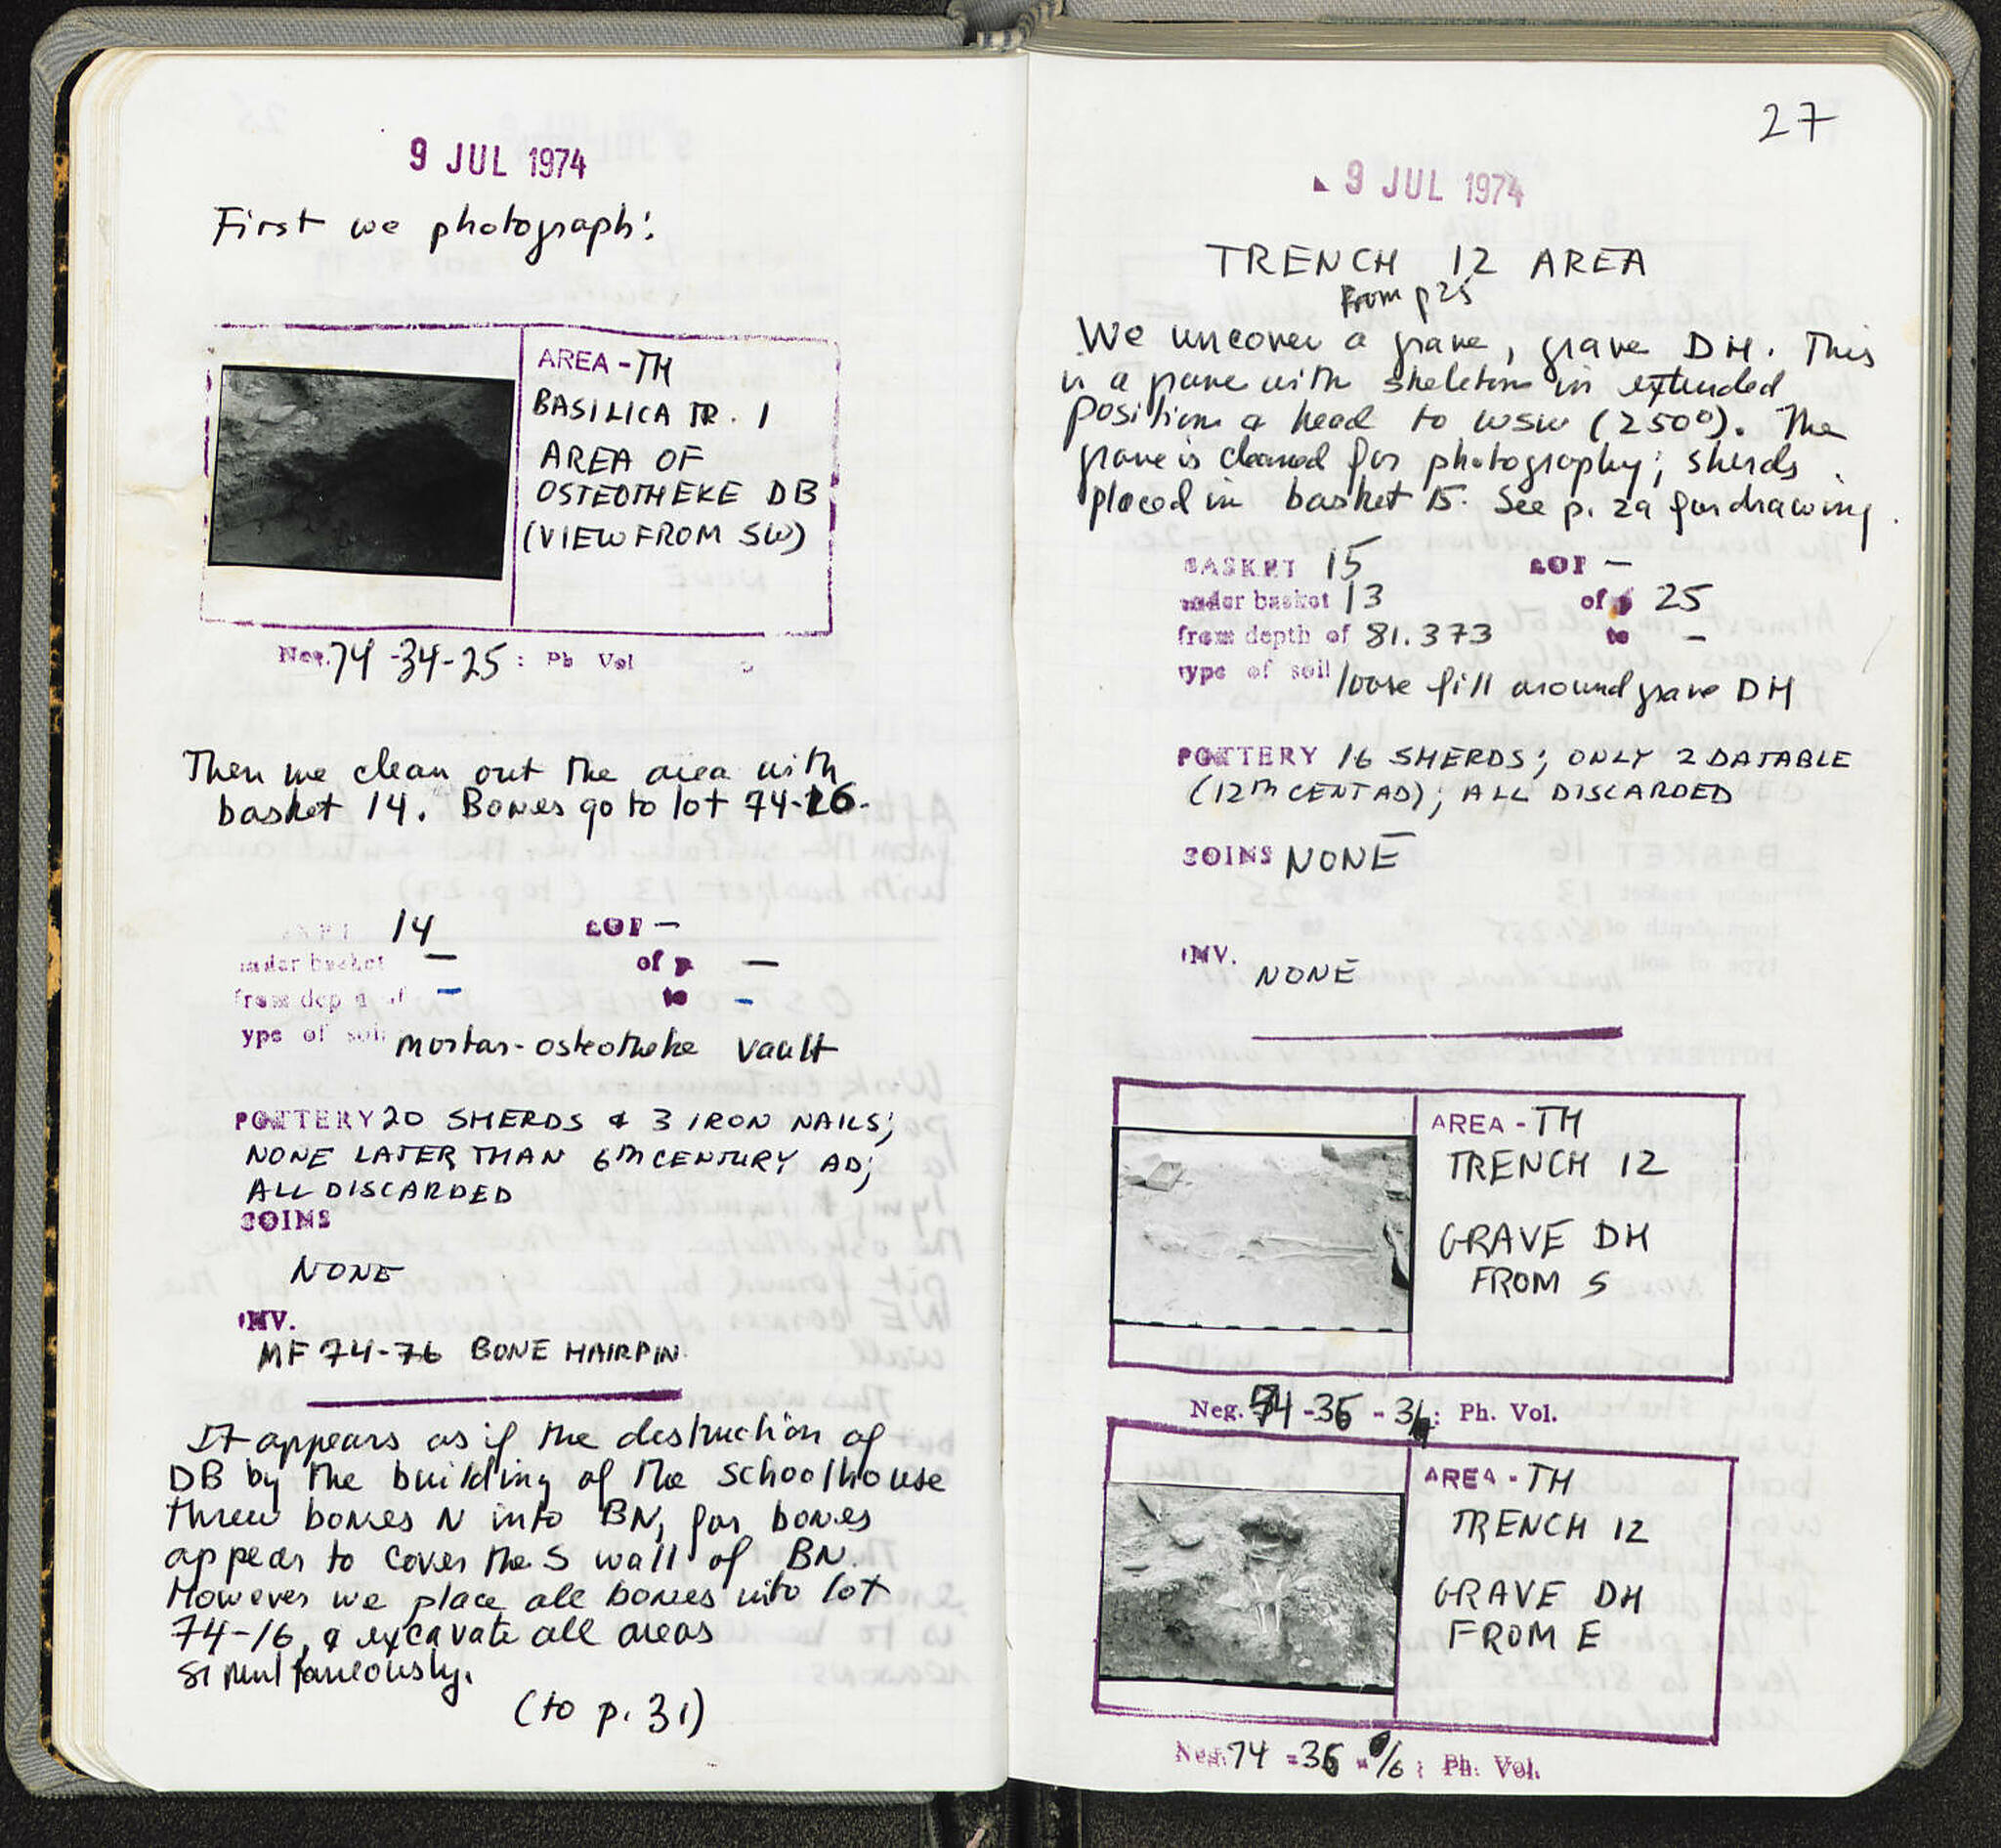 9 JUL 1974
First we photograph:
AREA - TH
BASILICA TR. 1
AREA OF
OSTEOTHEKE DB
(VIEW FROM SW)
Neg. 74-34-25 : Ph Vol
Then we clean out the area with
basket 14. Bones go to lot 74-16.
14 LOT –
under basket – of p –
from dep of – to –
ype of soil mortar-osteotheke vault
POTTERY 20 SHERDS & 3 IRON NAILS;
NONE LATER THAN 6TH CENTURY AD;
ALL DISCARDED
COINS
NONE
INV.
MF 74-76 BONE HAIRPIN
It appears as if the destruction of
DB by the building of the schoolhouse
threw bones N into BN, for bones
appear to cover the S wall of BN.
However we place all bones into lot
74-16, & excavate all areas
simultaneously.
(to p. 31)
27
9 JUL 1974
TRENCH 12 AREA
from p 25
We uncover a grave, grave DH. This
is a grave with skeleton in extended
position & head to WSW (250°). The
grave is cleaned for photography; sherds
placed in basket 15. See p. 29 for drawing.
BASKET 15 LOT –
under basket 13 of p 25
from depth of 81.373 to –
type of soil loose fill around grave DH
POTTERY 16 SHERDS; ONLY 2 DATABLE
(12TH CENT AD); ALL DISCARDED
COINS NONE
INV.
NONE
AREA - TH
TRENCH 12
GRAVE DH
FROM S
Neg. 74-36- : Ph. Vol.
AREA - TH
TRENCH 12
GRAVE DH
FROM E
Neg. 74-36- : Ph. Vol.